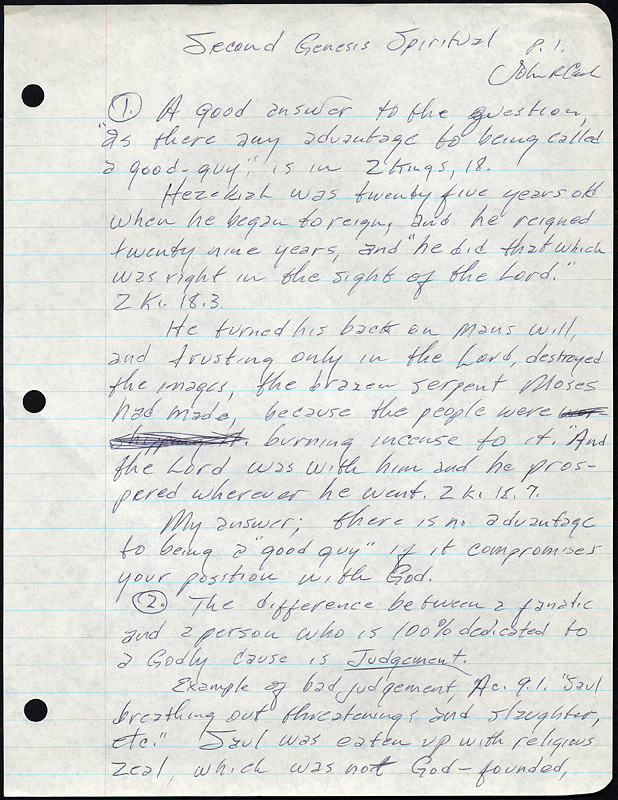 Second Genesis Spiritual P. 1.
John R Cash
1. A good answer to the question,
"Is there any advantage to being called
a good-guy", is in 2 Kings, 18.
Hezekiah was twenty five years old
when he began to reign, and he reigned
twenty nine years, and "he did that which
was right in the sight of the Lord."
2 Ki. 18.3.
He turned his back on mans will,
and trusting only in the Lord, destroyed
the images, the brazen serpent Moses
had made, because the people were wor-
shipping it. burning incense to it. "And
the Lord was with him and he pros-
pered wherever he went. 2 K. 18.7.
My answer; there is no advantage
to being a "good guy" if it compromises
your position with God.
2. The difference between a fanatic
and a person who is 100% dedicated to
a Godly cause is Judgement.
Example of bad judgement, Ac. 9.1. "Saul
breathing out threatenings and slaughter,
etc." Saul was eaten up with religious
zeal, which was not God-founded,